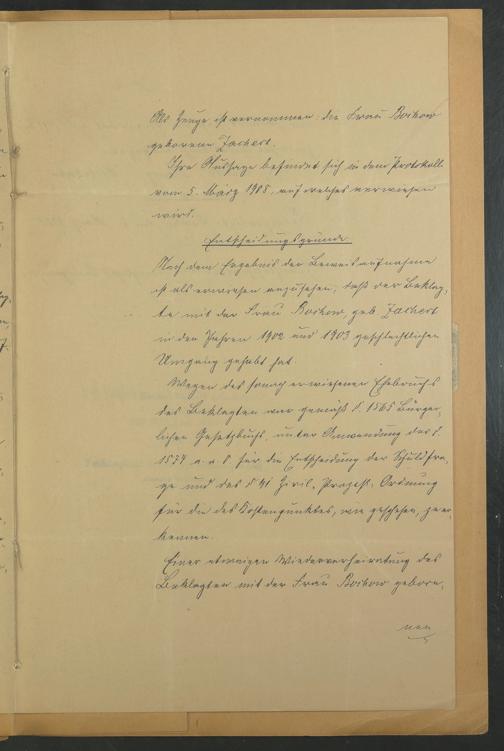 Als Zeuge ist vernommen: die Frau Borkow
geborene Zachert.
Ihre Aussage befindet sich in dem Protokoll
vom 5. März 1905, auf welches verwiesen
wird.
Entscheidungsgründe.
Nach dem Ergebnis der Beweisaufnahme
ist als erwiesen anzusehen, daß der Beklag-
te mit der Frau Borkow, geb. Zachert
in den Jahren 1902 und 1903 geschlechtlichen
Umgang gehabt hat.
Wegen des sonach erwiesenen Ehebruchs
des Beklagten war gemäß § 1565 Bürger-
lichen Gesetzbuchs unter Anwendung des §
1574 a. a. O. für die Entscheidung der Schuldfra-
ge und des § 91 Zivil-Prozeß-Ordnung
für die des Kostenpunktes, wie geschehen, zu er-
kennen.
Einer etwaigen Wiederverheiratung des
Beklagten mit der Frau Borkow gebore-
nen